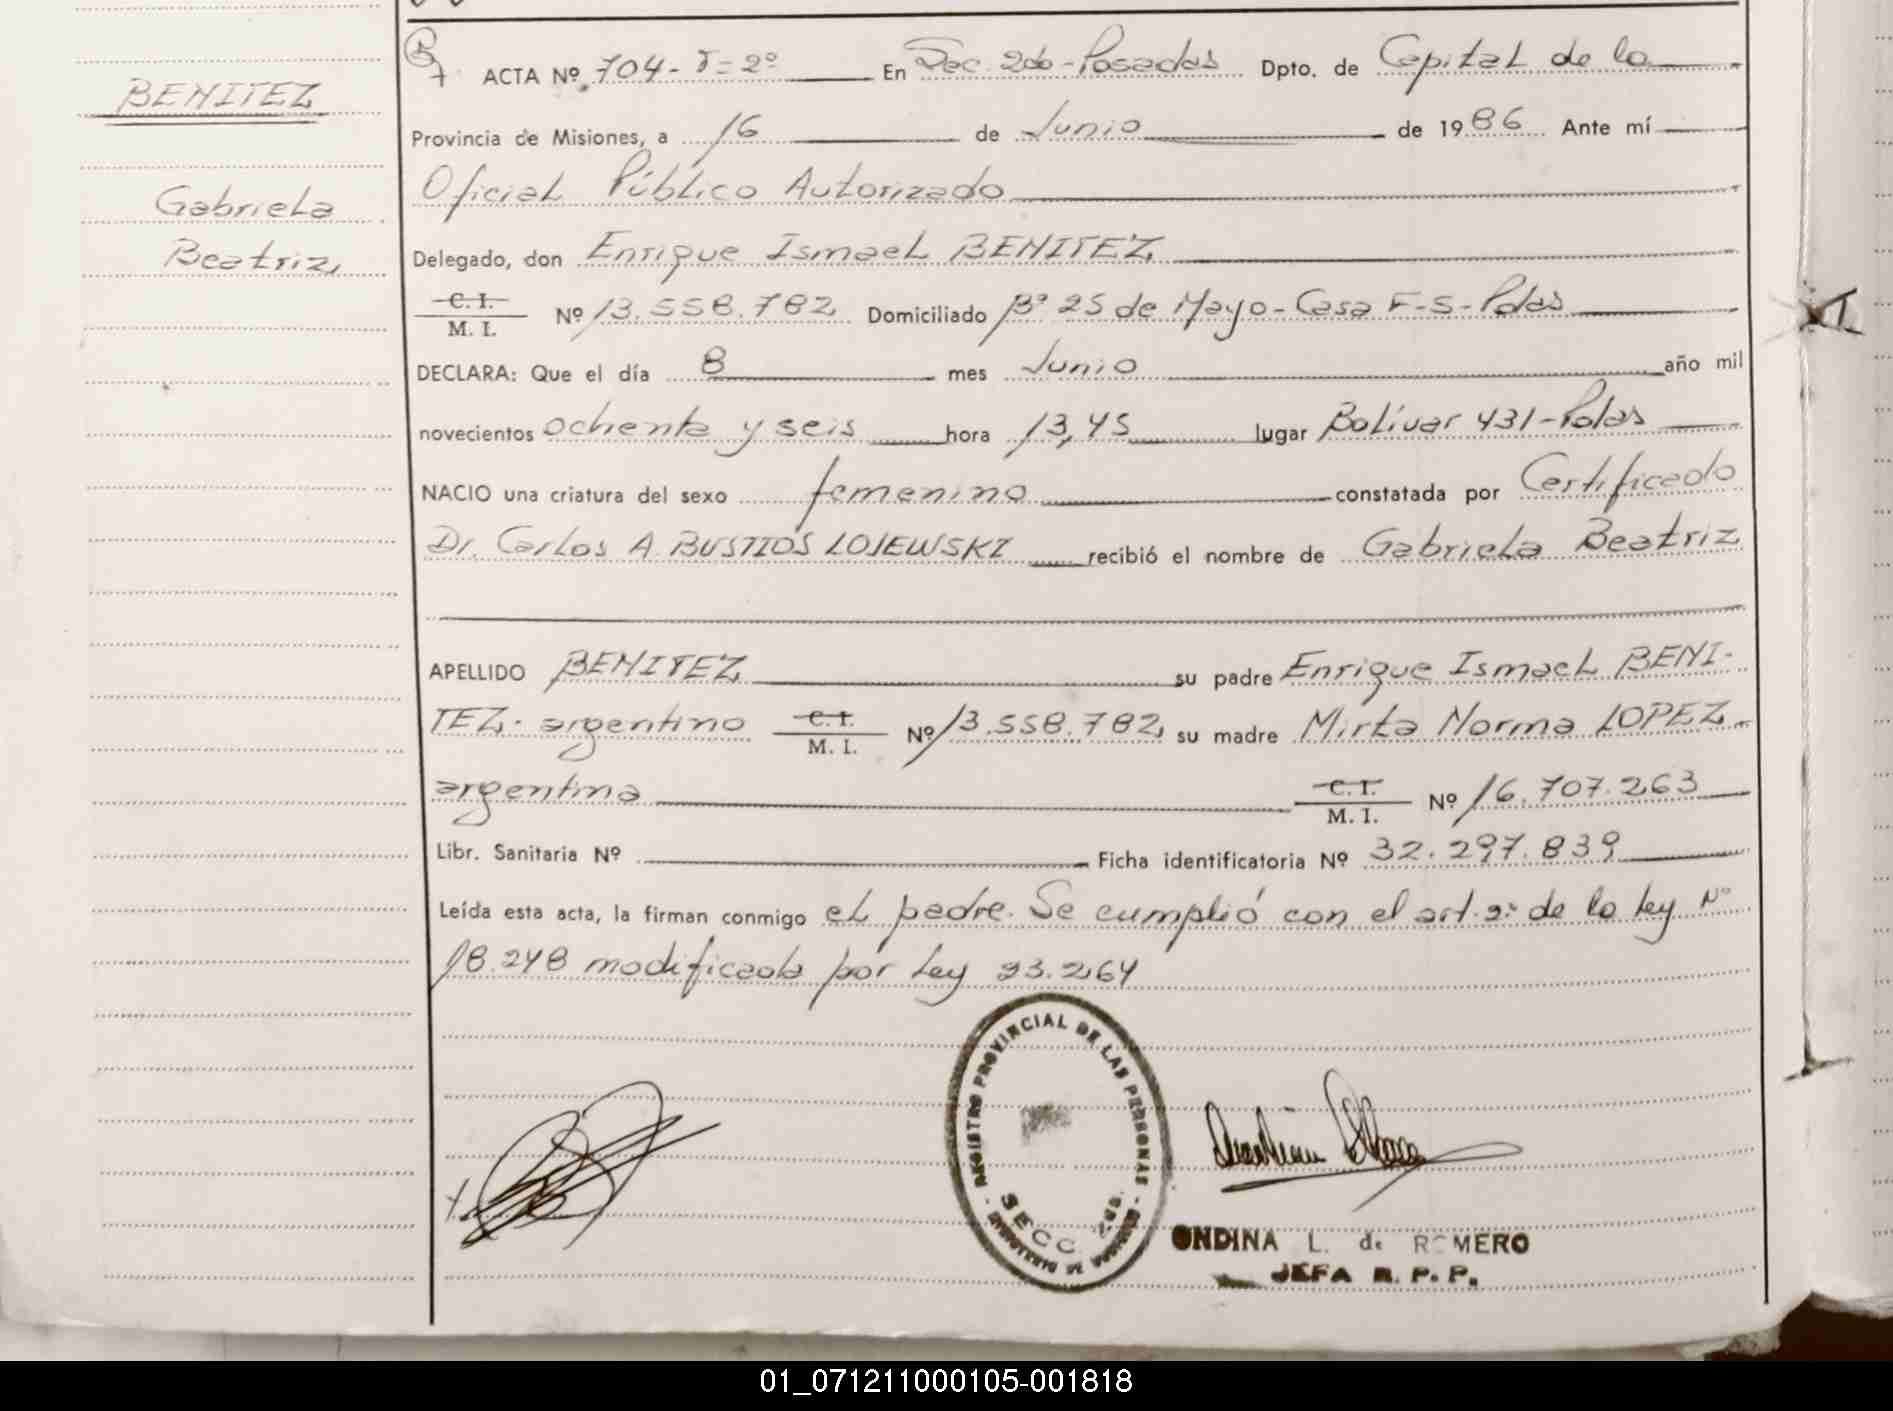 BENITEZ
Gabriela
Beatriz
ACTA Nº 704- T=2º En Sec. 2da-Posadas Dpto. de Capital de la
Provincia de Misiones, a 16 de Junio de 1986 Ante mí
Oficial Público Autorizado
Delegado, don Enrique Ismael BENITEZ
C. I.
M. I. Nº 13.558.782 Domiciliado Bº 25 de Mayo-Casa F-5-Pdas
DECLARA: Que el día 8 mes Junio año mil
novecientos ochenta y seis hora 13,45 lugar Bolívar 431-Pdas
NACIO una criatura del sexo femenino constatada por Certificado
Dr. Carlos A. BUSTIOS LOJEWSKI recibió el nombre de Gabriela Beatriz
APELLIDO BENITEZ su padre Enrique Ismael BENI-
TEZ- argentino C. I. M. I. Nº 13.558.782 su madre Mirta Norma LOPEZ-
argentina C. I. M. I. Nº 16.707.263
Libr. Sanitaria Nº Ficha identificatoria Nº 32.297.839
Leída esta acta, la firman conmigo el padre. Se cumplió con el art. 2º de la Ley Nº
18.248 modificada por Ley 23.264
REGISTRO PROVINCIAL DE LAS PERSONAS
SECC. 2da.
ONDINA L. de ROMERO
JEFA R. P. P.
01_071211000105-001818